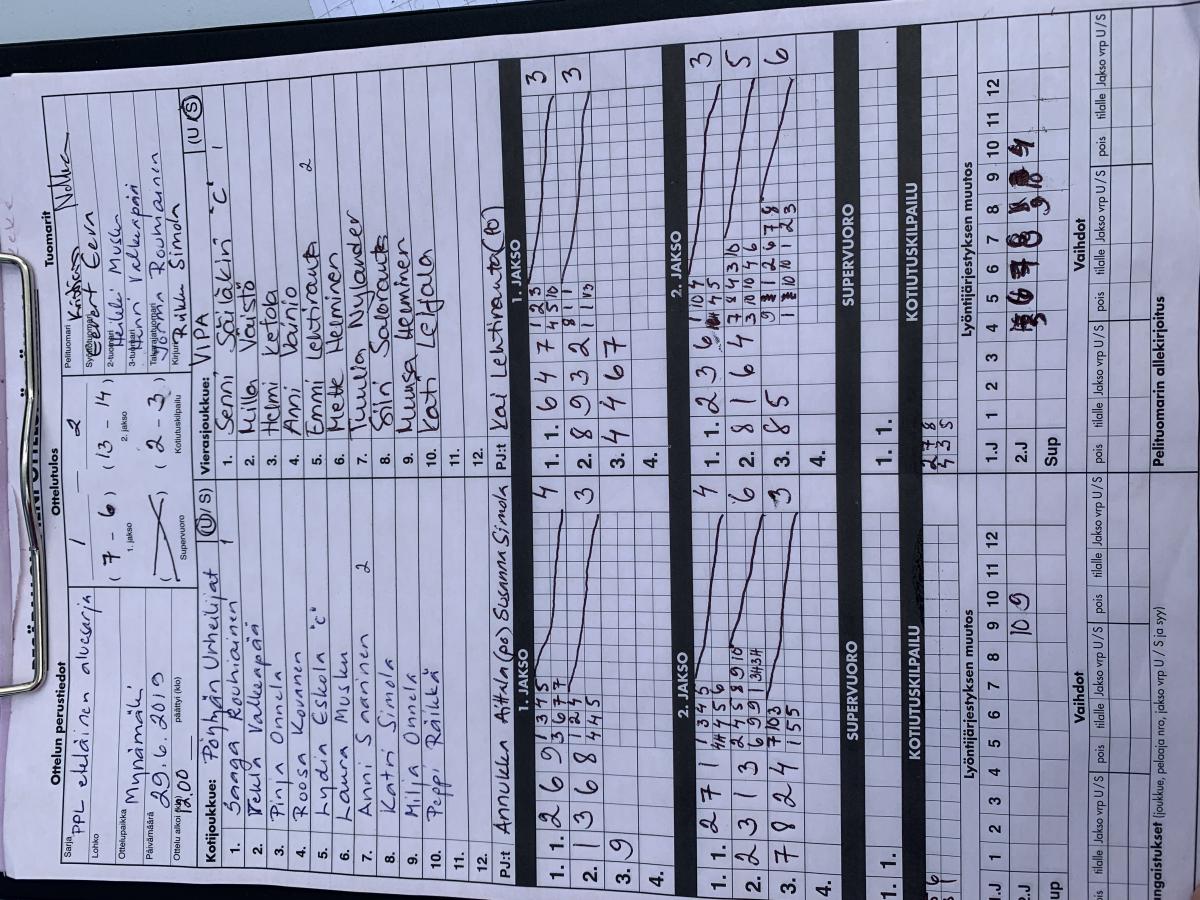 Ottelun perustiedot
Sarja PPL eteläinen alvesarja
Lohko
Ottelupaikka Mynämäki
Päivämäärä 29.6.2019
Ottelu alkoi (klo) 12.00 päättyi (klo)
Ottelutulos
1 - 2
(7 - 6) (13 - 14)
1. jakso 2. jakso
( ) (2 - 3)
Supervuoro Kotiutuskilpailu
Tuomarit
Pelituomari
Syöttötuomari Eevert Eera
2-tuomari Heikki Musku
3-tuomari Hanni Valkeapää
Takarajatuomari Jorma Rouhiainen
Kirjuri Rukku Simola
Kotijoukkue: Pöytyän Urheilijat (U / S)
1. Saaga Rouhiainen 1
2. Vekla Valkeapää
3. Pinja Onnela
4. Roosa Kovanen
5. Lydia Eskola "C"
6. Laura Musku
7. Anni Saarinen 2
8. Katri Simola
9. Milja Onnela
10. Peppi Räikkä
11.
12.
PJ:t Annukka Aittala (po) Susanna Simola
Vierasjoukkue: ViPa (U / S)
1. Senni Säiläkivi "C" 1
2. Milla Vaistö
3. Helmi Ketola
4. Anni Vainio
5. Emmi Lehtiranta 2
6. Mette Helminen
7. Tuulia Nylander
8. Siiri Saloranta
9. Muusa Helminen
10. Kati Leijala
11.
12.
PJ:t Kai Lehtiranta (po)
1. JAKSO
1. 1. 2 6 9 1 3 4 5 4
3 6 7 7
2. 1 3 6 8 1 2 4 3
4 4 5
3. 9
4.
1. JAKSO
1. 1. 6 4 7 1 2 3 3
4 5 10
2. 8 9 3 2 8 1 1 3
1 1 13
3. 4 4 6 7
4.
2. JAKSO
1. 1. 2 7 1 1 3 4 5 4
4 4 5 6
2. 2 3 1 3 2 4 5 8 9 10 6
6 9 9 1 3 4
3. 7 8 2 4 7 10 3 3
1 5 5
4.
2. JAKSO
1. 1. 2 3 6 1 10 4 3
4 5
2. 8 1 6 4 7 8 4 3 10 5
3 10 10 4 6
3. 8 5 1 2 6 7 8 6
10 10 1 2 3
4.
SUPERVUORO
1. 1.
SUPERVUORO
1. 1.
KOTIUTUSKILPAILU
KOTIUTUSKILPAILU
2 7 8
4 3 5
Lyöntijärjestyksen muutos
1.J 1 2 3 4 5 6 7 8 9 10 11 12
2.J 10 9
Sup
Lyöntijärjestyksen muutos
1.J 1 2 3 4 5 6 7 8 9 10 11 12
2.J
Sup
Vaihdot
pois tilalle Jakso vrp U / S pois tilalle Jakso vrp U / S pois tilalle Jakso vrp U / S
Vaihdot
pois tilalle Jakso vrp U / S pois tilalle Jakso vrp U / S pois tilalle Jakso vrp U / S
ngaistukset (joukkue, pelaaja nro, jakso vrp U / S ja syy)
Pelituomarin allekirjoitus